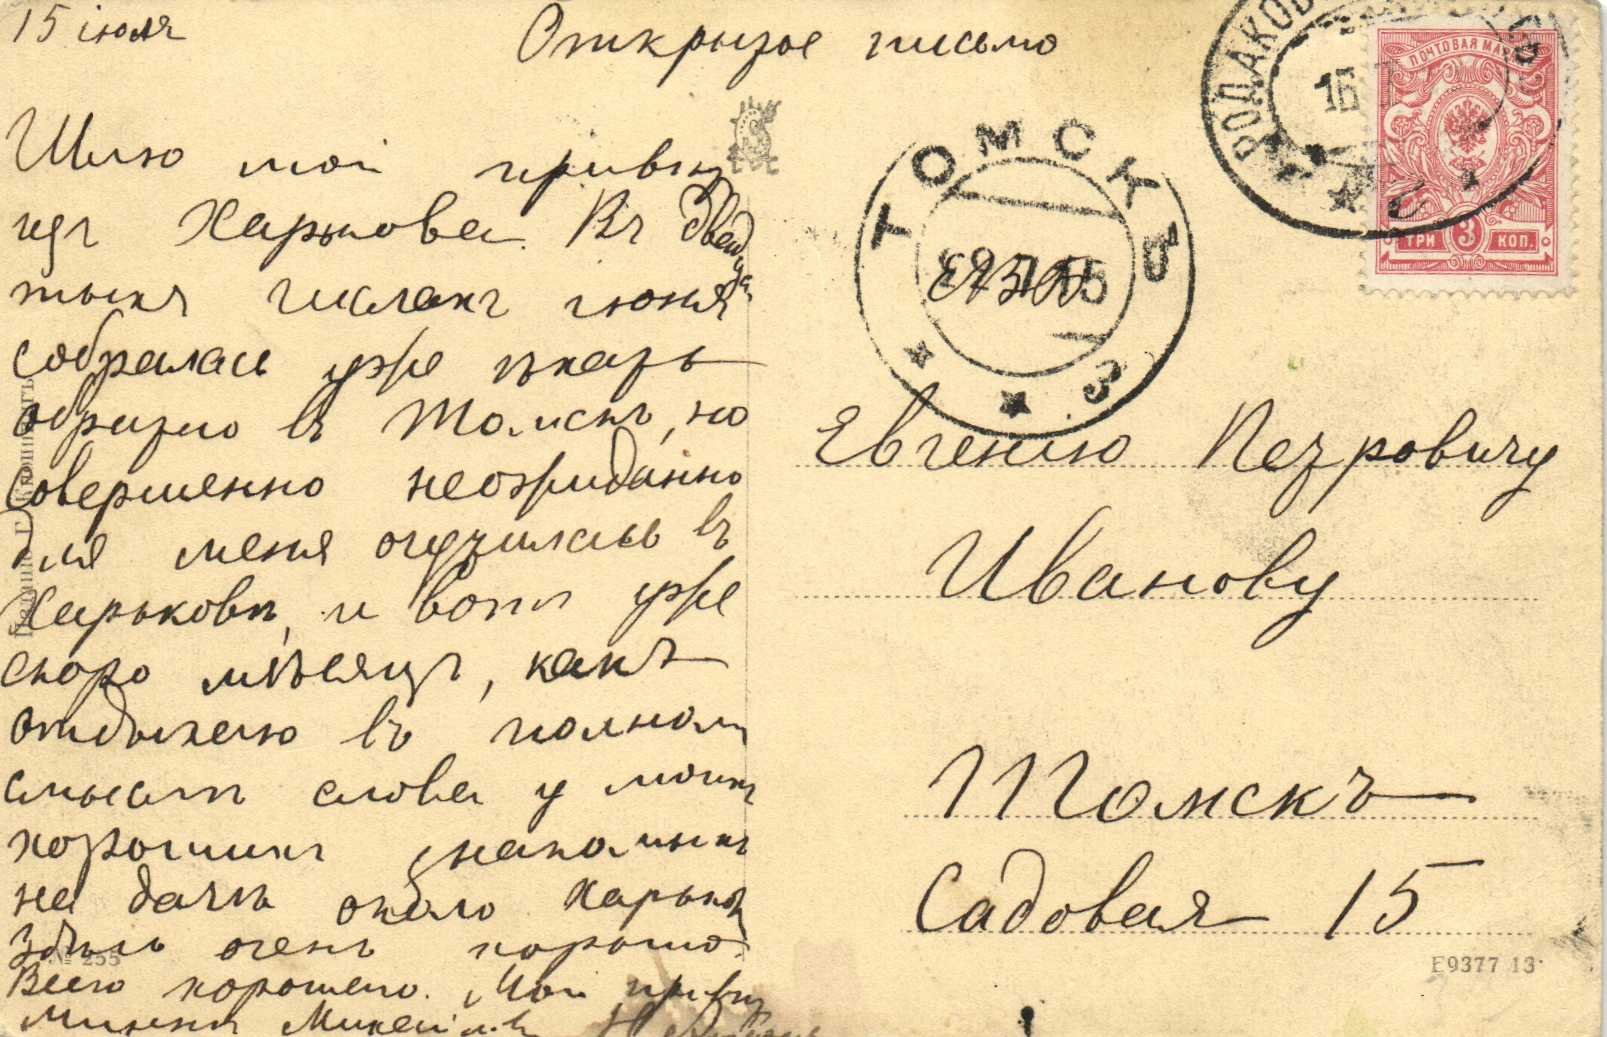 15 іюля
Открытое письмо
Шлю мой привѣт
изъ Харькова. Въ двадца
тыхъ числахъ іюня
собралась уже ѣхать
обратно въ Томскъ, но
совершенно неожиданно
для меня очутилась въ
Харьковѣ, и вотъ уже
скоро мѣсяцъ, какъ
отдыхаю въ полном
смыслѣ слова у моихъ
хорошихъ знакомыхъ
на дачѣ около Харьков
Здѣсь очень хорошо.
Всего хорошего. Мой привѣт
РОДАКОВ
15
ПОЧТОВАЯ МАРКА
ТРИ 3 КОП.
ТОМСКЪ
15
3
Евгенію Петровичу
Иванову
Томскъ
Садовая 15
№ 255
E9377 13